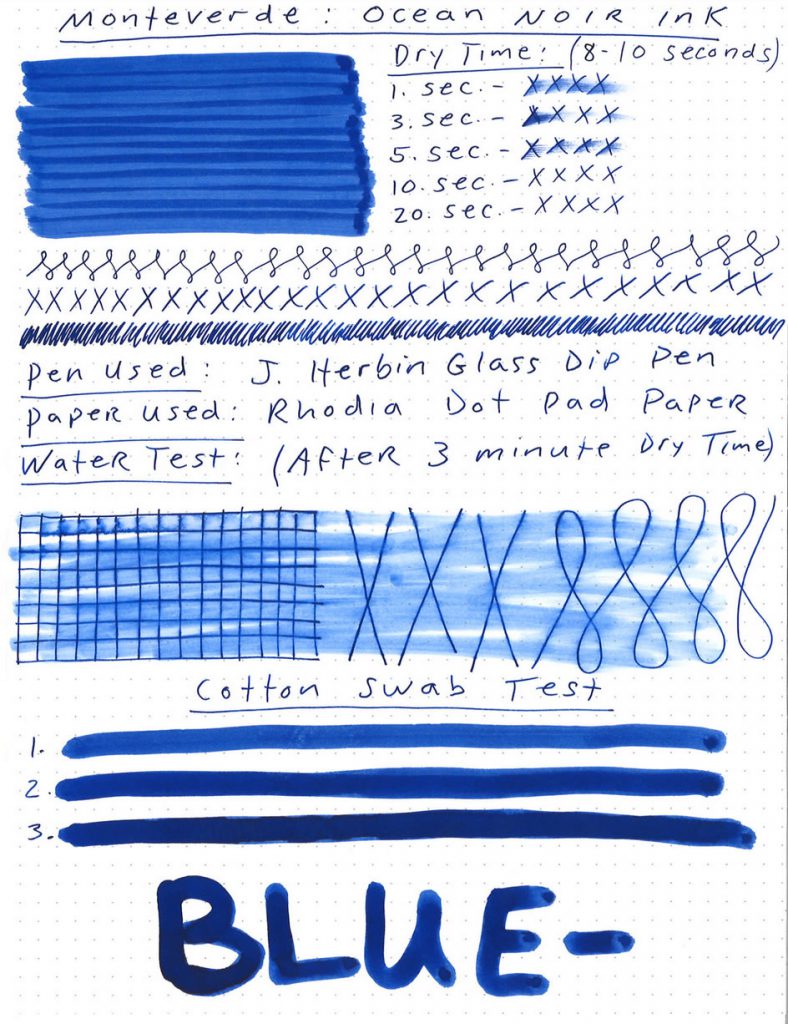 Monteverde: Ocean Noir Ink
Dry Time: (8-10 seconds)
1. sec. - XXXX
3. sec. - XXXX
5. sec. - XXXX
10. sec. - XXXX
20. sec. - XXXX
XXXXXXXXXXXXXXXXXXXXXXXXXXXXX
Pen Used: J. Herbin Glass Dip Pen
Paper Used: Rhodia Dot Pad Paper
Water Test: (After 3 minute Dry Time)
XXX
Cotton Swab Test
1.
2.
3.
BLUE-